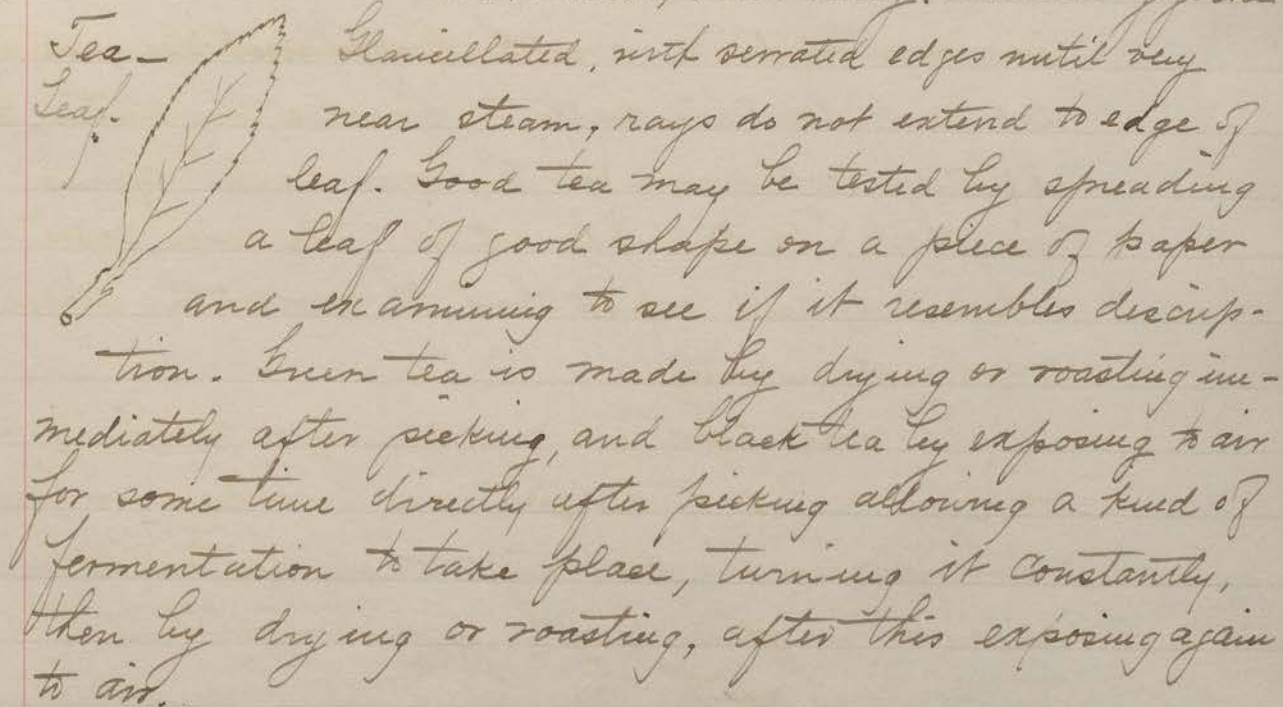 Tea-
Leaf.
Glaucillated, with serrated edges until very
near steam, rays do not extend to edge of
leaf. Good tea may be tested by spreading
a leaf of good shape on a piece of paper
and examining to see if it resembles descrip-
tion. Green tea is made by drying or roasting im-
mediately after picking, and black tea by exposing to air
for some time directly after picking allowing a kind of
fermentation to take place, turning it constantly,
then by drying or roasting, after this exposing again
to air.